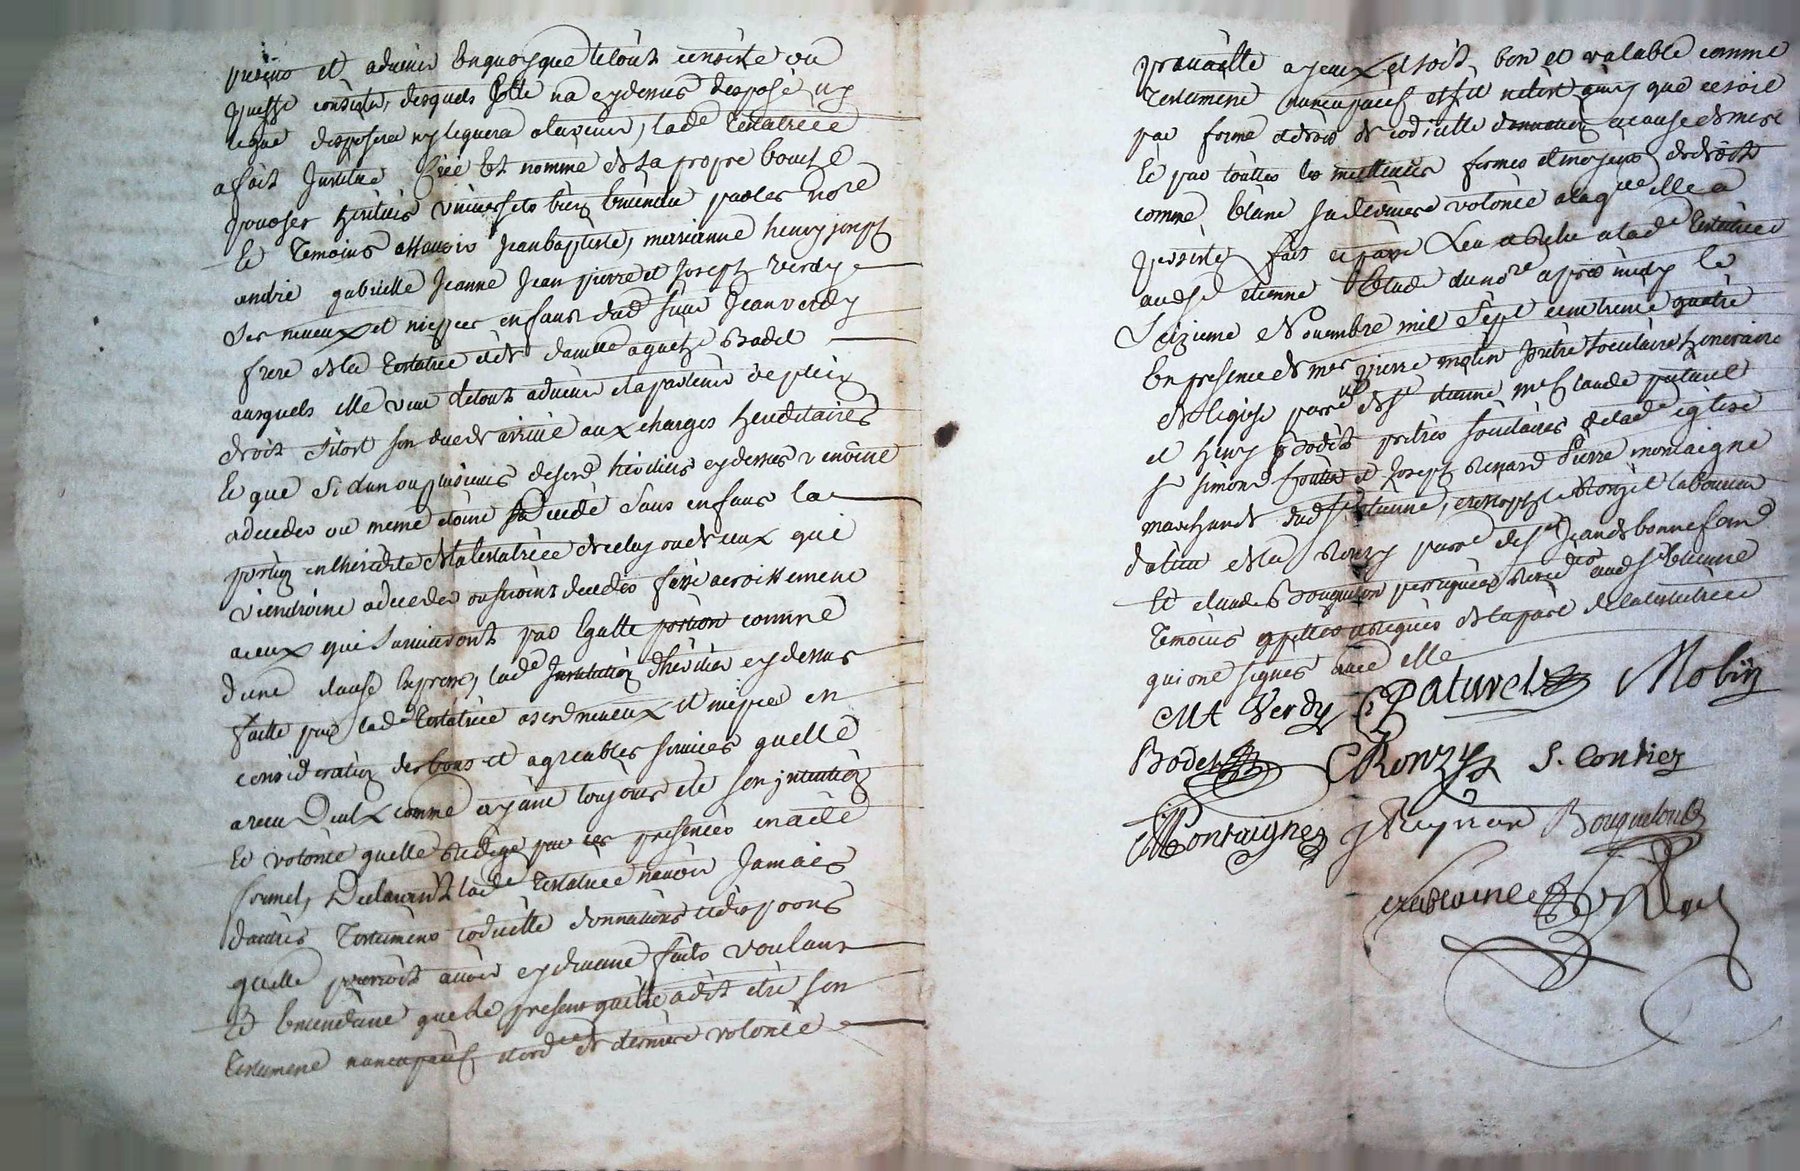 presens et advenir en quoy que le tout consiste ou
puisse consister, desquels elle na cy dessus disposé ny
legué disposera ny leguera alavenir, lad.e Testatrice
a fait Institué Créé Et nommé de sa propre bouche
pour ses heritiers universels bien entendu par led. no.re
Et Temoins assavoir Jean baptiste, marianne henry joseph
andré gabrielle Jeanne Jean pierre et Joseph Verdy
ses neveux et nieppces enfans dud. sieur Jean verdy
frere de la Testatrice et de damlle agathe Badel
ausquels elle veut le tout advenir et apartenir de plein
droit sitost son deceds arrivé aux charges hereditaires
Et que si dun ou plusieurs desd. heritiers cy dessus venoint
a deceder ou meme etoint decedé sans enfans la
portion en lheredité de la testatrice de celuy ou deux qui
viendroint a deceder ou seroint decedes fasse acroissement
a ceux qui survivront par Egalle portion comme
dune clause expresse, lad.e Institution dheritier cy dessus
faitte par lad.e Testatrice a sesd. neveux et niepces en
consideration des bons et agreables services quelle
a receu Deux comme ayant toujours eté son jntention
Et volonté quelle redige par ces presentes en acte
formel, Declarant lad.e Testatrice navoir Jamais
dautres Testamens codicille donnations et disp.ons
quelle pourroit avoir cy devant faits voulant
Et Entendant que le present quelle a dit etre son
Testament nuncupatif et ord.ce de derniere volonté
pravaille a yceux et soit bon et valable comme
Testament nuncupatif et sil netoit ainsy que ce soit
par forme et droit de codicille donnation a cause de mort
Et par touttes les meilleures formes et moyens de droit
comme Etant sa derniere volonté a laq.elle elle a
persisté fait et passé Leu et relu a lad.e Testatrice
aud. st etienne Etude du no.re apres midy le
Seizieme Novembre mil sept cent trente quatre
En presence de m.re pierre molin pretre societaire honoraire
de leglise parr.lle de st etienne m.re Claude paturel
et henry Bodet pretres societaires de lad.e eglise
sr simond et Joseph Renard Pierre montaigne
marchands dud. st etienne, Ronzil laboureur
du lieu de la Ronzy parr.e de st Jean de bonnefond
Et claude Bouquelon perruquier Resid.t aud. st Etienne
Temoins appellés et requis de la part de la testatrice
qui ont signés avec elle
MA Verdy C Paturel Molin
Bodet C Ronzy S. Conhez
P Montaigne J Reynard Bouquelon